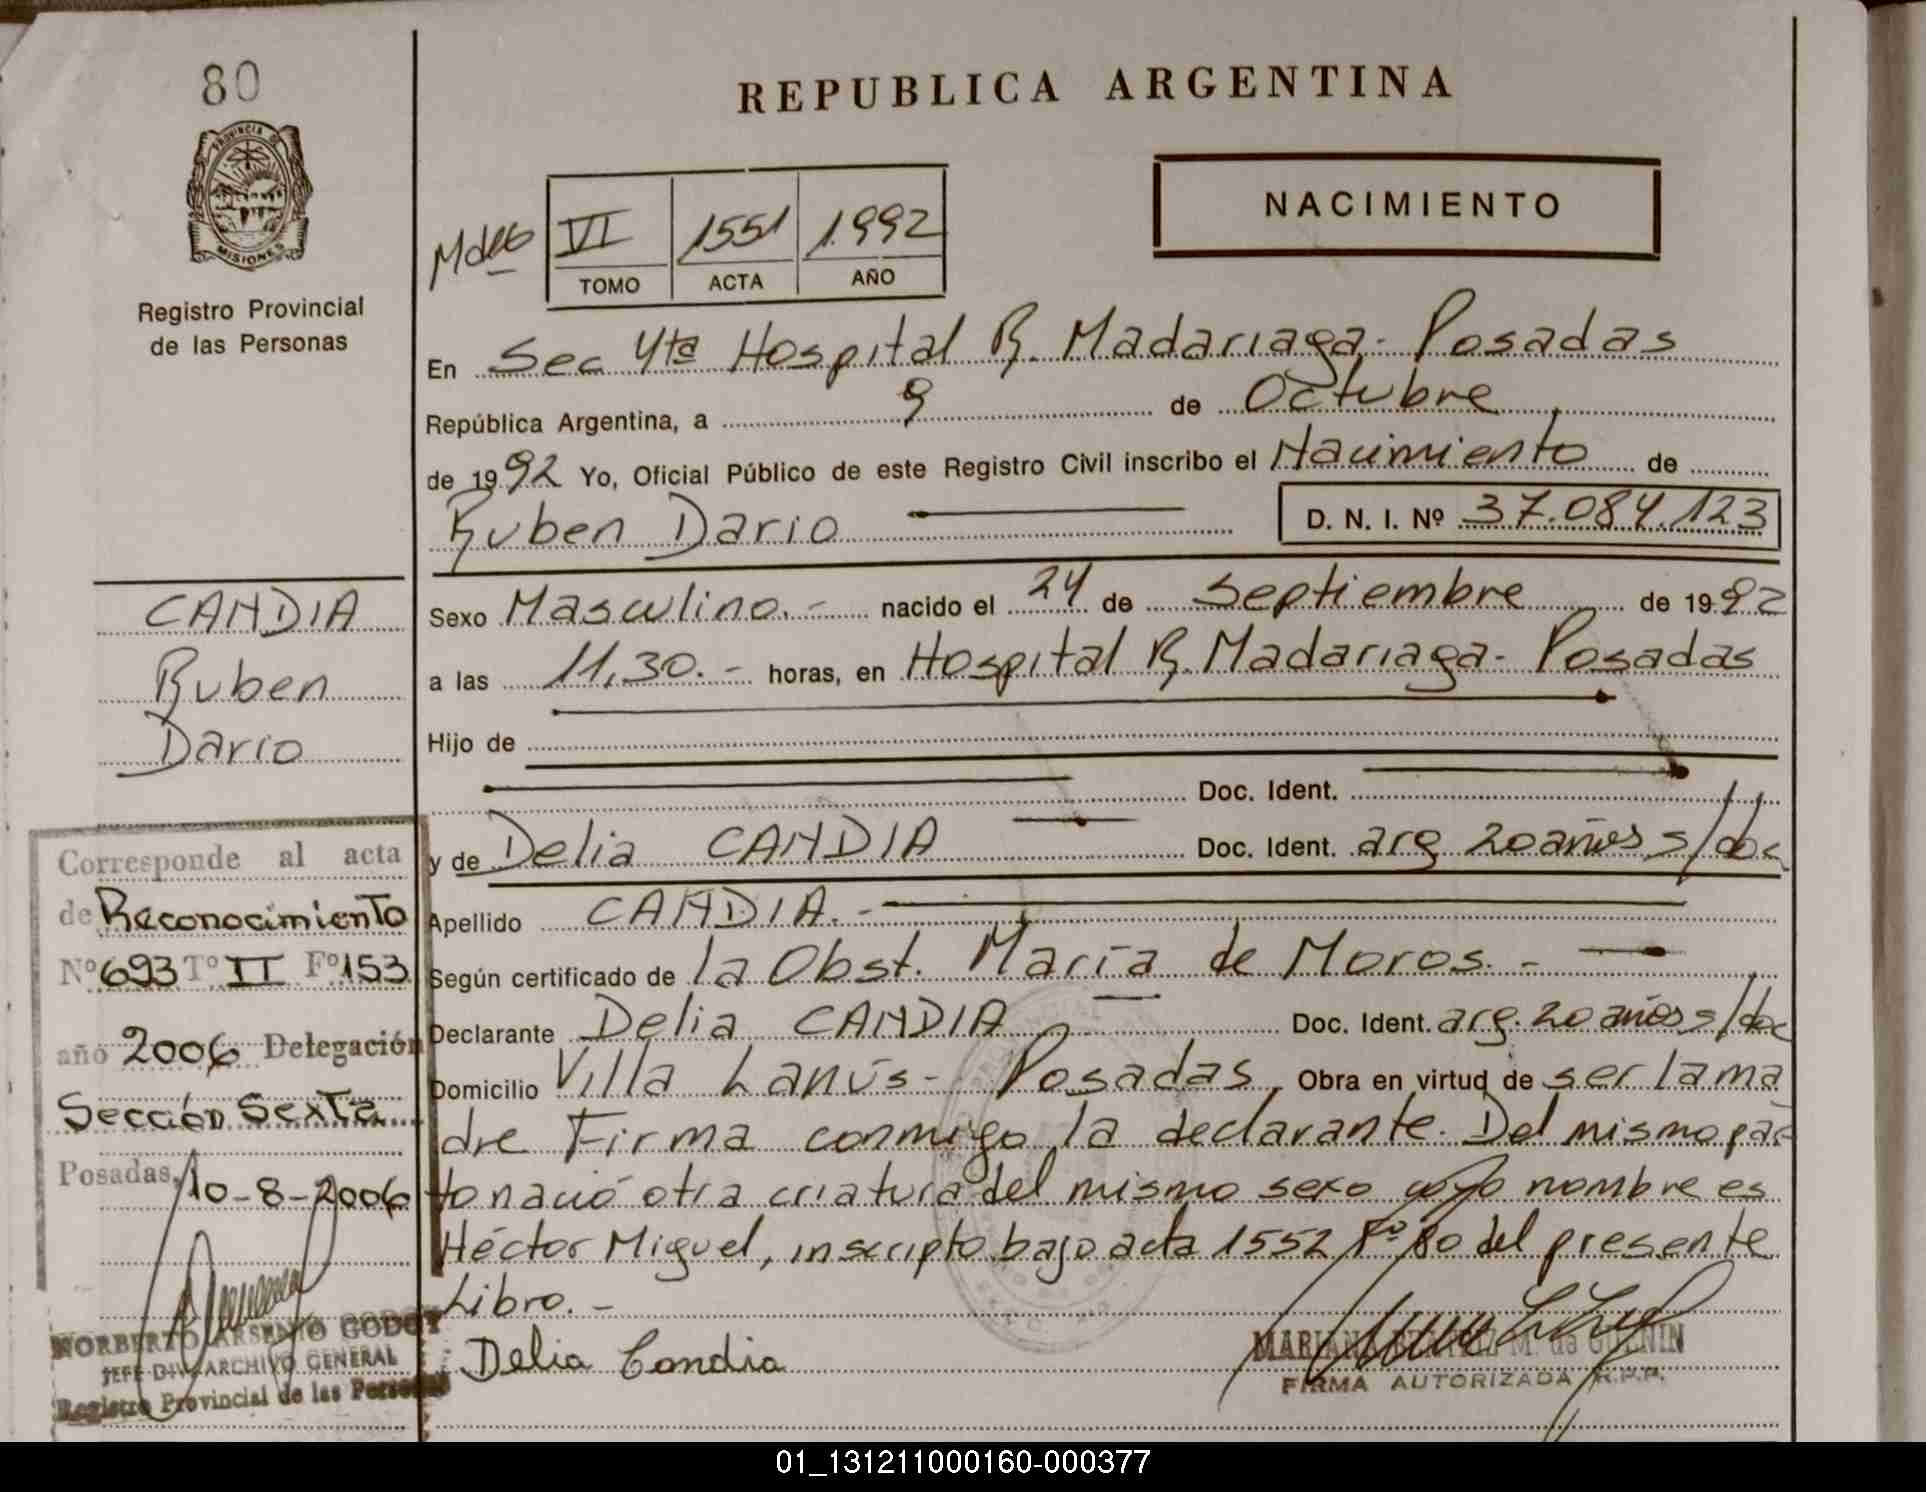 80
PROVINCIA DE
MISIONES
Registro Provincial
de las Personas
REPUBLICA ARGENTINA
NACIMIENTO
VI 1551 1.992
TOMO ACTA AÑO
En Sec 4ta Hospital R. Madariaga - Posadas
República Argentina, a 9 de Octubre
de 1992 Yo, Oficial Público de este Registro Civil inscribo el Nacimiento de
Ruben Dario
D. N. I. Nº 37.084.123
CANDIA
Ruben
Dario
Sexo Masculino.- nacido el 24 de Septiembre de 1992
a las 11,30.- horas, en Hospital R. Madariaga - Posadas
Hijo de
Doc. Ident.
y de Delia CANDIA Doc. Ident. arg 20 años s/doc
Apellido CANDIA.-
Según certificado de la Obst. María de Moros.-
Declarante Delia CANDIA Doc. Ident. arg. 20 años s/doc
Domicilio Villa Lanús - Posadas Obra en virtud de ser la ma
dre Firma conmigo la declarante. Del mismo par
to nació otra criatura del mismo sexo cuyo nombre es
Héctor Miguel, inscripto bajo acta 1552 Fº 80 del presente
Libro.-
Delia Candia
MARIANA M. de GUENIN
FIRMA AUTORIZADA R.P.P.
Corresponde al acta
de Reconocimiento
Nº 693 Tº II Fº 153
año 2006 Delegación
Sección Sexta
Posadas, 10-8-2006
NORBERTO ARSENIO GODOY
JEFE DIV. ARCHIVO GENERAL
Registro Provincial de las Personas
01_131211000160-000377